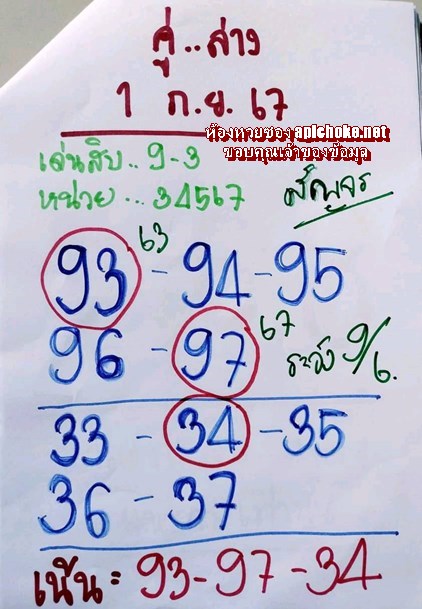 คู่..ล่าง
1 ก.ย. 67
ห้องหวยซอง apichoke.net
ขอบคุณเจ้าของข้อมูล
เล่นสิบ.. 9-3
หน่วย... 34567
สัญจร
93 63 - 94 - 95
96 - 97 67 ระวัง 9/6.
33 - 34 - 35
36 - 37
เน้น = 93-97-34